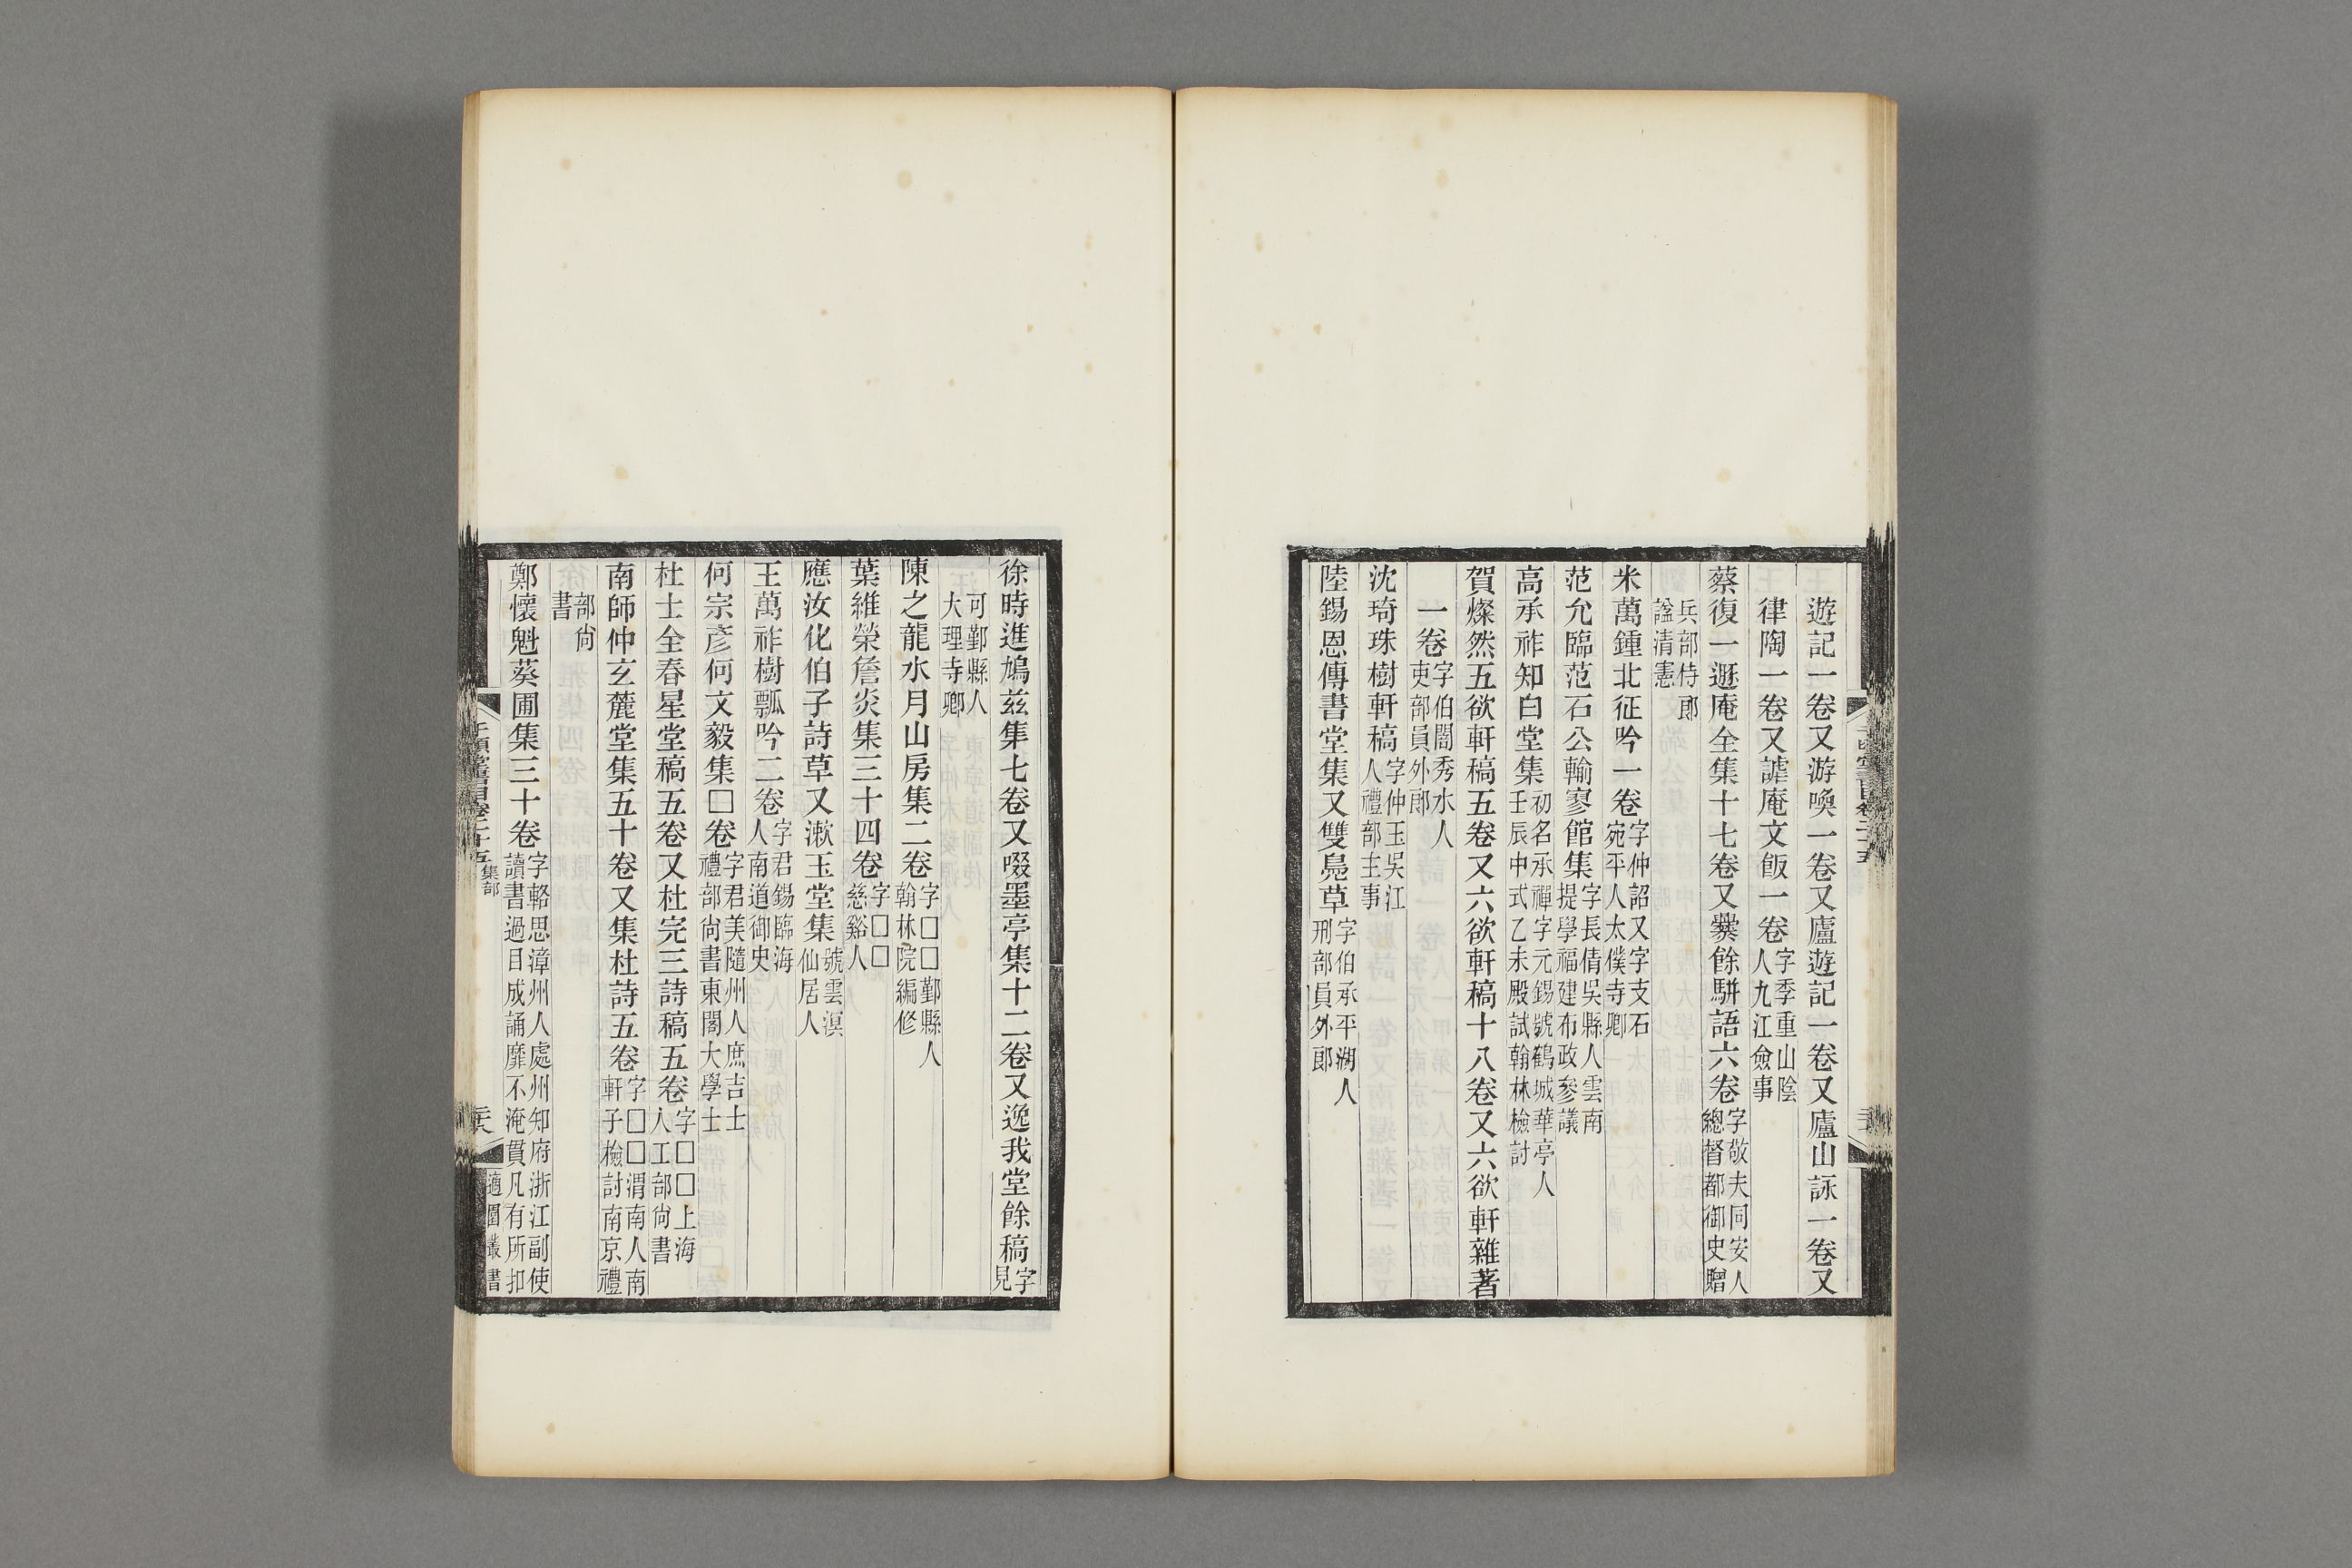 遊記一卷又游喚一卷又廬遊記一卷又廬山詠一卷又
律陶一卷又謔庵文飯一卷字季重山陰人九江僉事
蔡復一遯庵全集十七卷又爨餘駢語六卷字敬夫同安人總督都御史贈
兵部侍郎諡清憲
米萬鍾北征吟一卷字仲詔又字支石宛平人太僕寺卿
范允臨范石公輸寥館集字長倩吳縣人雲南提學福建布政參議
高承祚知白堂集初名承禪字元錫號鶴城華亭人壬辰中式乙未殿試翰林檢討
賀燦然五欲軒稿五卷又六欲軒稿十八卷又六欲軒雜著
一卷字伯闇秀水人吏部員外郎
沈琦珠樹軒稿字仲玉吳江人禮部主事
陸錫恩傳書堂集又雙鳧草字伯承平湖人刑部員外郎
徐時進鳩茲集七卷又啜墨亭集十二卷又逸我堂餘稿字見
可鄞縣人大理寺卿
陳之龍水月山房集二卷字□□鄞縣人翰林院編修
葉維榮詹炎集三十四卷字□□慈谿人
應汝化伯子詩草又漱玉堂集號雲溟仙居人
王萬祚樹瓢吟二卷字君錫臨海人南道御史
何宗彥何文毅集□卷字君美隨州人庶吉士禮部尚書東閣大學士
杜士全春星堂稿五卷又杜完三詩稿五卷字□□上海人工部尚書
南師仲玄麓堂集五十卷又集杜詩五卷字□□渭南人南軒子檢討南京禮
部尚書
鄭懷魁葵圃集三十卷字輅思漳州人處州知府浙江副使讀書過目成誦靡不淹貫凡有所扣
千頃堂書目卷二十五集部
二十六
適園叢書